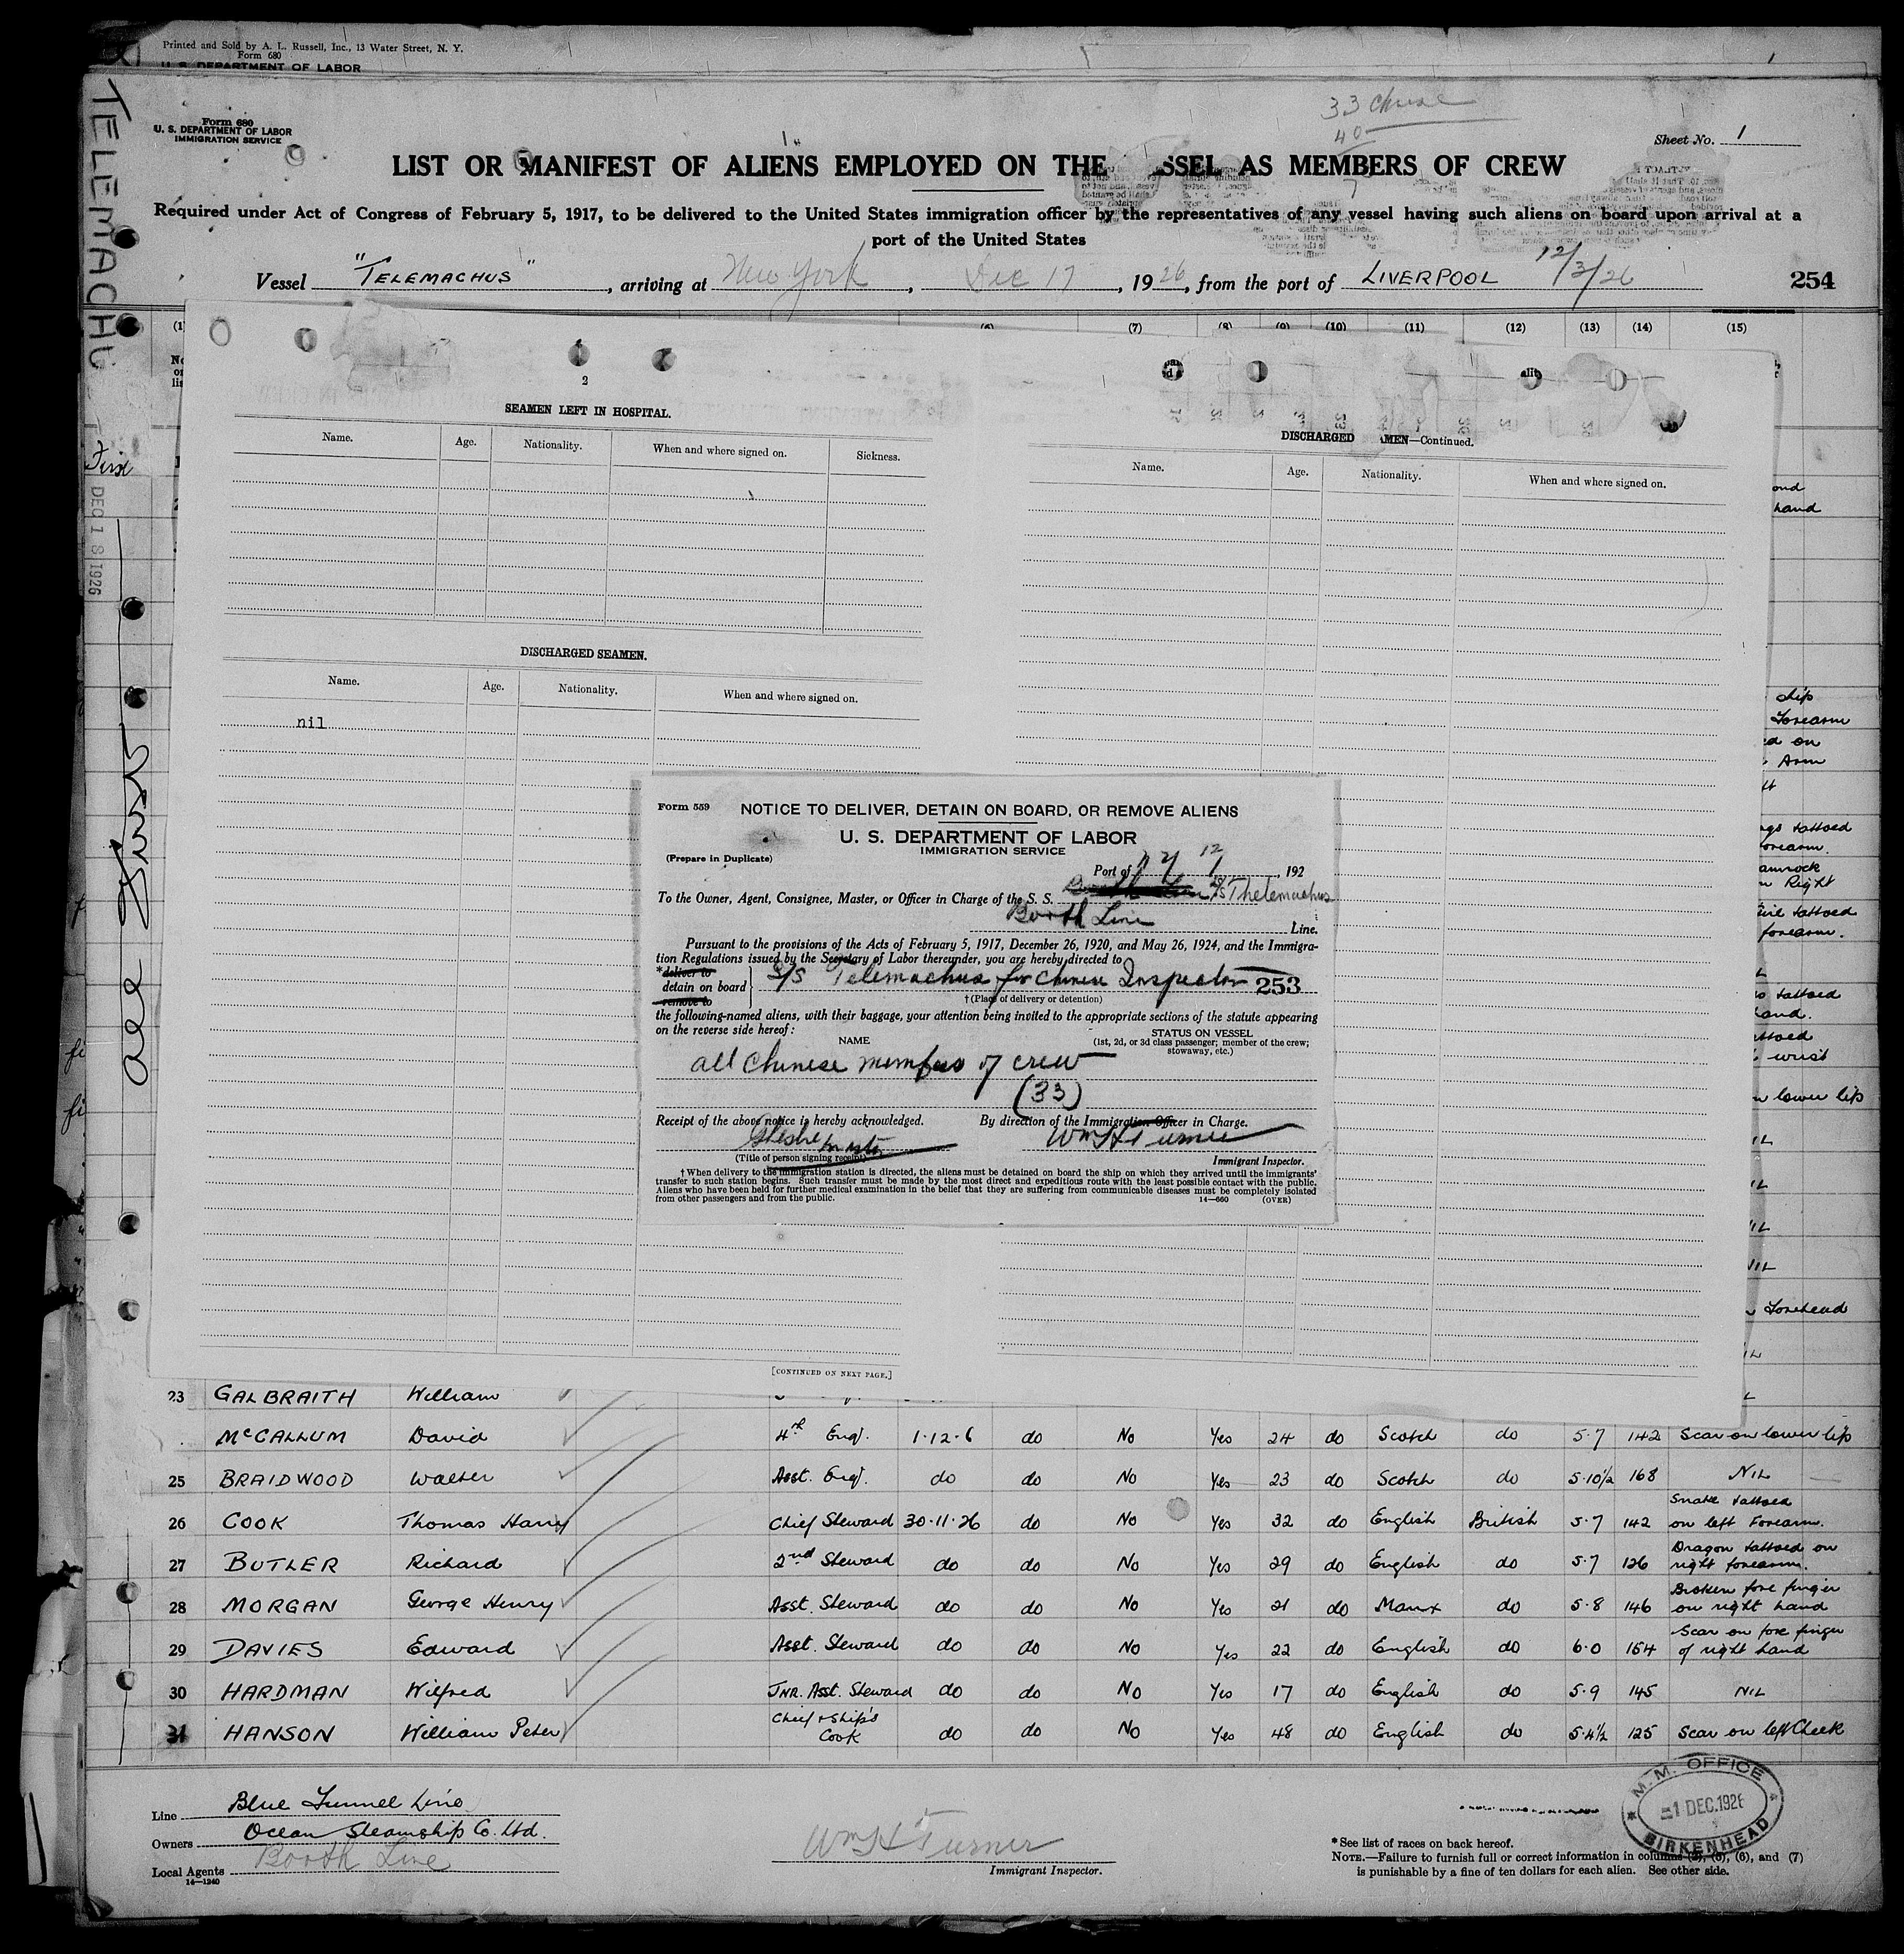 Printed and Sold by A. L. Russell, Inc., 13 Water Street, N. Y.
Form 680
U. S. DEPARTMENT OF LABOR
TELEMACHU
Form 680
U. S. DEPARTMENT OF LABOR
IMMIGRATION SERVICE
33 Chinese
40
7
Sheet No. 1
LIST OR MANIFEST OF ALIENS EMPLOYED ON THE SSEL AS MEMBERS OF CREW
Required under Act of Congress of February 5, 1917, to be delivered to the United States immigration officer by the representatives of any vessel having such aliens on board upon arrival at a
port of the United States
Vessel "TELEMACHUS", arriving at New York, Dec 17, 1926, from the port of LIVERPOOL 12/3/26
254
(7) (8) (9) (10) (11) (12) (13) (14) (15)
DEC 18 1926
2
SEAMEN LEFT IN HOSPITAL.
Name. Age. Nationality. When and where signed on. Sickness.
DISCHARGED SEAMEN.
Name. Age. Nationality. When and where signed on.
nil
DISCHARGED MEN—Continued.
Name. Age. Nationality. When and where signed on.
ond
hand
Forearm
ed on
Arm
tattoed
forearm.
amrock
Right
tattoed
forearm.
tattoed
hand.
wrist
lower lip
Forehead
Form 559
NOTICE TO DELIVER, DETAIN ON BOARD, OR REMOVE ALIENS
U. S. DEPARTMENT OF LABOR
IMMIGRATION SERVICE
(Prepare in Duplicate)
Port of NY 12/, 192
To the Owner, Agent, Consignee, Master, or Officer in Charge of the S. S. S/S Thelemachus
Booth Line Line.
Pursuant to the provisions of the Acts of February 5, 1917, December 26, 1920, and May 26, 1924, and the Immigra-
tion Regulations issued by the Secretary of Labor thereunder, you are hereby directed to
*deliver to
detain on board
remove to
S/S Telemachus for Chinese Inspector 253
†(Place of delivery or detention)
the following-named aliens, with their baggage, your attention being invited to the appropriate sections of the statute appearing
on the reverse side hereof:
NAME
STATUS ON VESSEL
(1st, 2d, or 3d class passenger; member of the crew;
stowaway, etc.)
all Chinese members of crew
(33)
Receipt of the above notice is hereby acknowledged.
By direction of the Immigration Officer in Charge.
master
Wm H Turner
(Title of person signing receipt)
Immigrant Inspector.
†When delivery to the immigration station is directed, the aliens must be detained on board the ship on which they arrived until the immigrants'
transfer to such station begins. Such transfer must be made by the most direct and expeditious route with the least possible contact with the public.
Aliens who have been held for further medical examination in the belief that they are suffering from communicable diseases must be completely isolated
from other passengers and from the public.
14—660 (OVER)
[CONTINUED ON NEXT PAGE.]
23 GALBRAITH William
McCALLUM David 4th Eng. 1-12-6 do No Yes 24 do Scotch do 5-7 142 Scar on lower lip
25 BRAIDWOOD Walter Asst. Eng. do do No Yes 23 do Scotch do 5-10½ 168 NIL
26 COOK Thomas Harry Chief Steward 30-11-26 do No Yes 32 do English British 5-7 142 Snake tattoed on left Forearm.
27 BUTLER Richard 2nd Steward do do No Yes 29 do English do 5-7 126 Dragon tattoed on right forearm.
28 MORGAN George Henry Asst. Steward do do No Yes 21 do Manx do 5-8 146 Broken fore finger on right hand
29 DAVIES Edward Asst. Steward do do No Yes 22 do English do 6-0 154 Scar on fore finger of right hand
30 HARDMAN Wilfred JNR. Asst. Steward do do No Yes 17 do English do 5-9 145 NIL
31 HANSON William Peter Chief & Ship's Cook do do No Yes 48 do English do 5-4½ 125 Scar on left Cheek
Line Blue Funnel Line
Owners Ocean Steamship Co. Ltd.
Local Agents Booth Line
14—1240
Wm H Turner
Immigrant Inspector.
M. M. OFFICE
1 DEC. 1926
BIRKENHEAD
*See list of races on back hereof.
NOTE.—Failure to furnish full or correct information in columns (2), (5), (6), and (7)
is punishable by a fine of ten dollars for each alien. See other side.